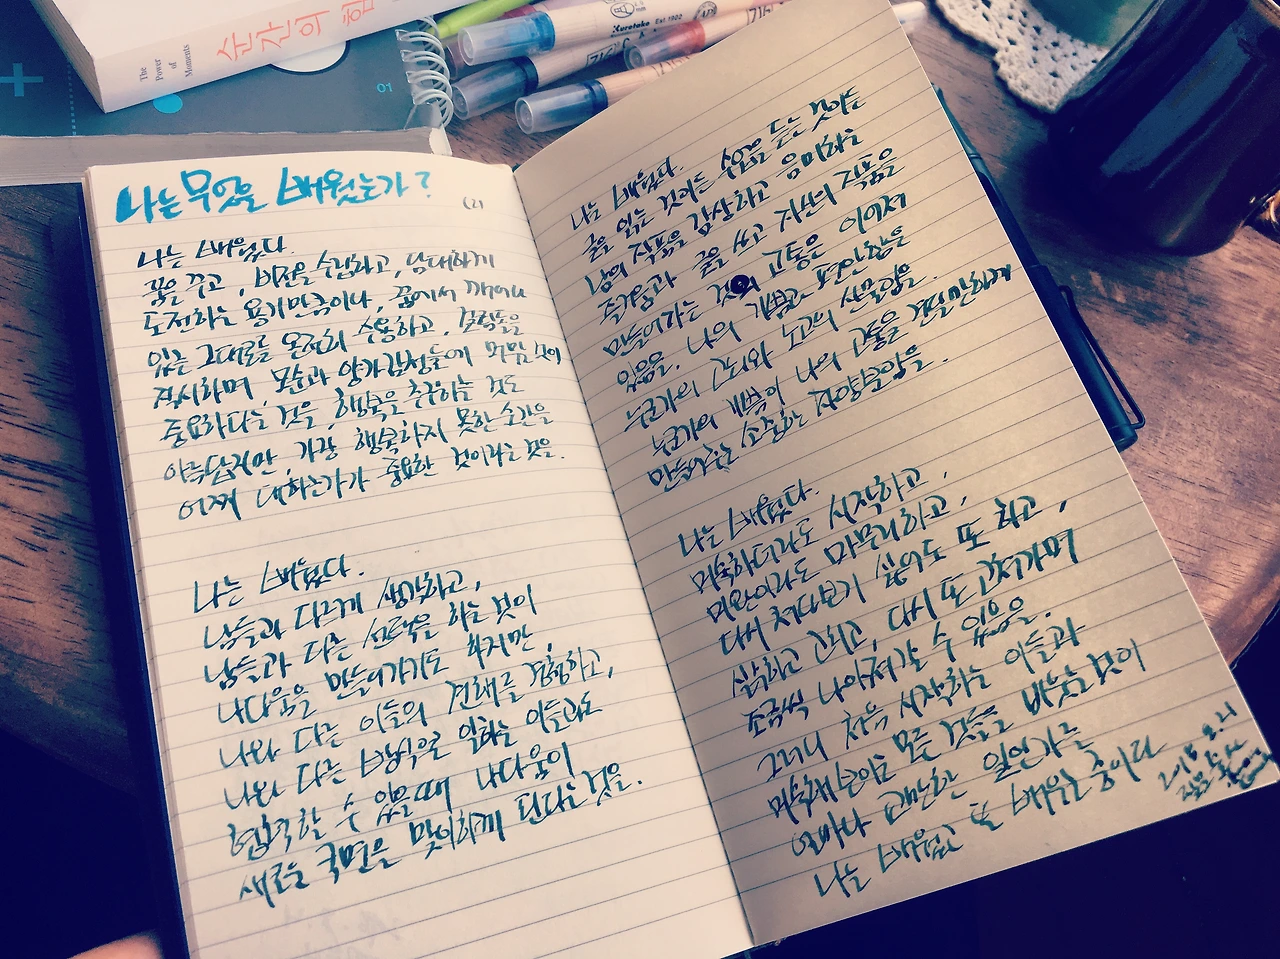 순간의 힘
The Power of Moments
01
Kuretake Est 1902
나는 무엇을 배웠는가?
(2)
나는 배웠다.
꿈을 꾸고, 비전을 수립하고, 담대하게
도전하는 용기만큼이나, 꿈에서 깨어나
있는 그대로를 온전히 수용하고,
직시하며, 모순과 양가감정들에 머뭄 이
중요하다는 것을, 행복을 추구하는 것도
아름답지만, 가장 행복하지 못한 순간을
어찌 대하는가가 중요한 것이라는 것을.
나는 배웠다.
남들과 다르게 생각하고,
남들과 다른 선택을 하는 것이
나다움을 만들어가기도 하지만,
나와 다른 이들의 견해를 경험하고,
나와 다른 방식으로 일하는 이들과도
협력할 수 있을 때 나다움이
새로운 국면을 맞이하게 된다는 것을.
나는 배웠다.
글을 읽는 것과는 수업을 듣는 것이든
남의 작품을 감상하고 음미하는
즐거움과 글을 쓰고 자신의 작품을
만들어가는 것의 고통은 이어져
있음을. 나의 기쁨과 편안함은
누군가의 노고의 산물임을.
누군가의 기쁨이 나의 고통을 견딜만하게
만들어주는 소중한 자양분임을
나는 배웠다.
미숙하더라도 시작하고,
미완이라도 마무리하고,
다시 쳐다보기 싫어도 또 하고,
싫하고 고치고, 다시 또 고쳐가며
조금씩 나아져갈 수 있음을.
그러니 처음 시작하는 이들과
미숙해보이는 모든 것들을 비웃는 것이
얼마나 교만한 일인가를
나는 배웠고 또 배우는 중이다
2018. 9. 21